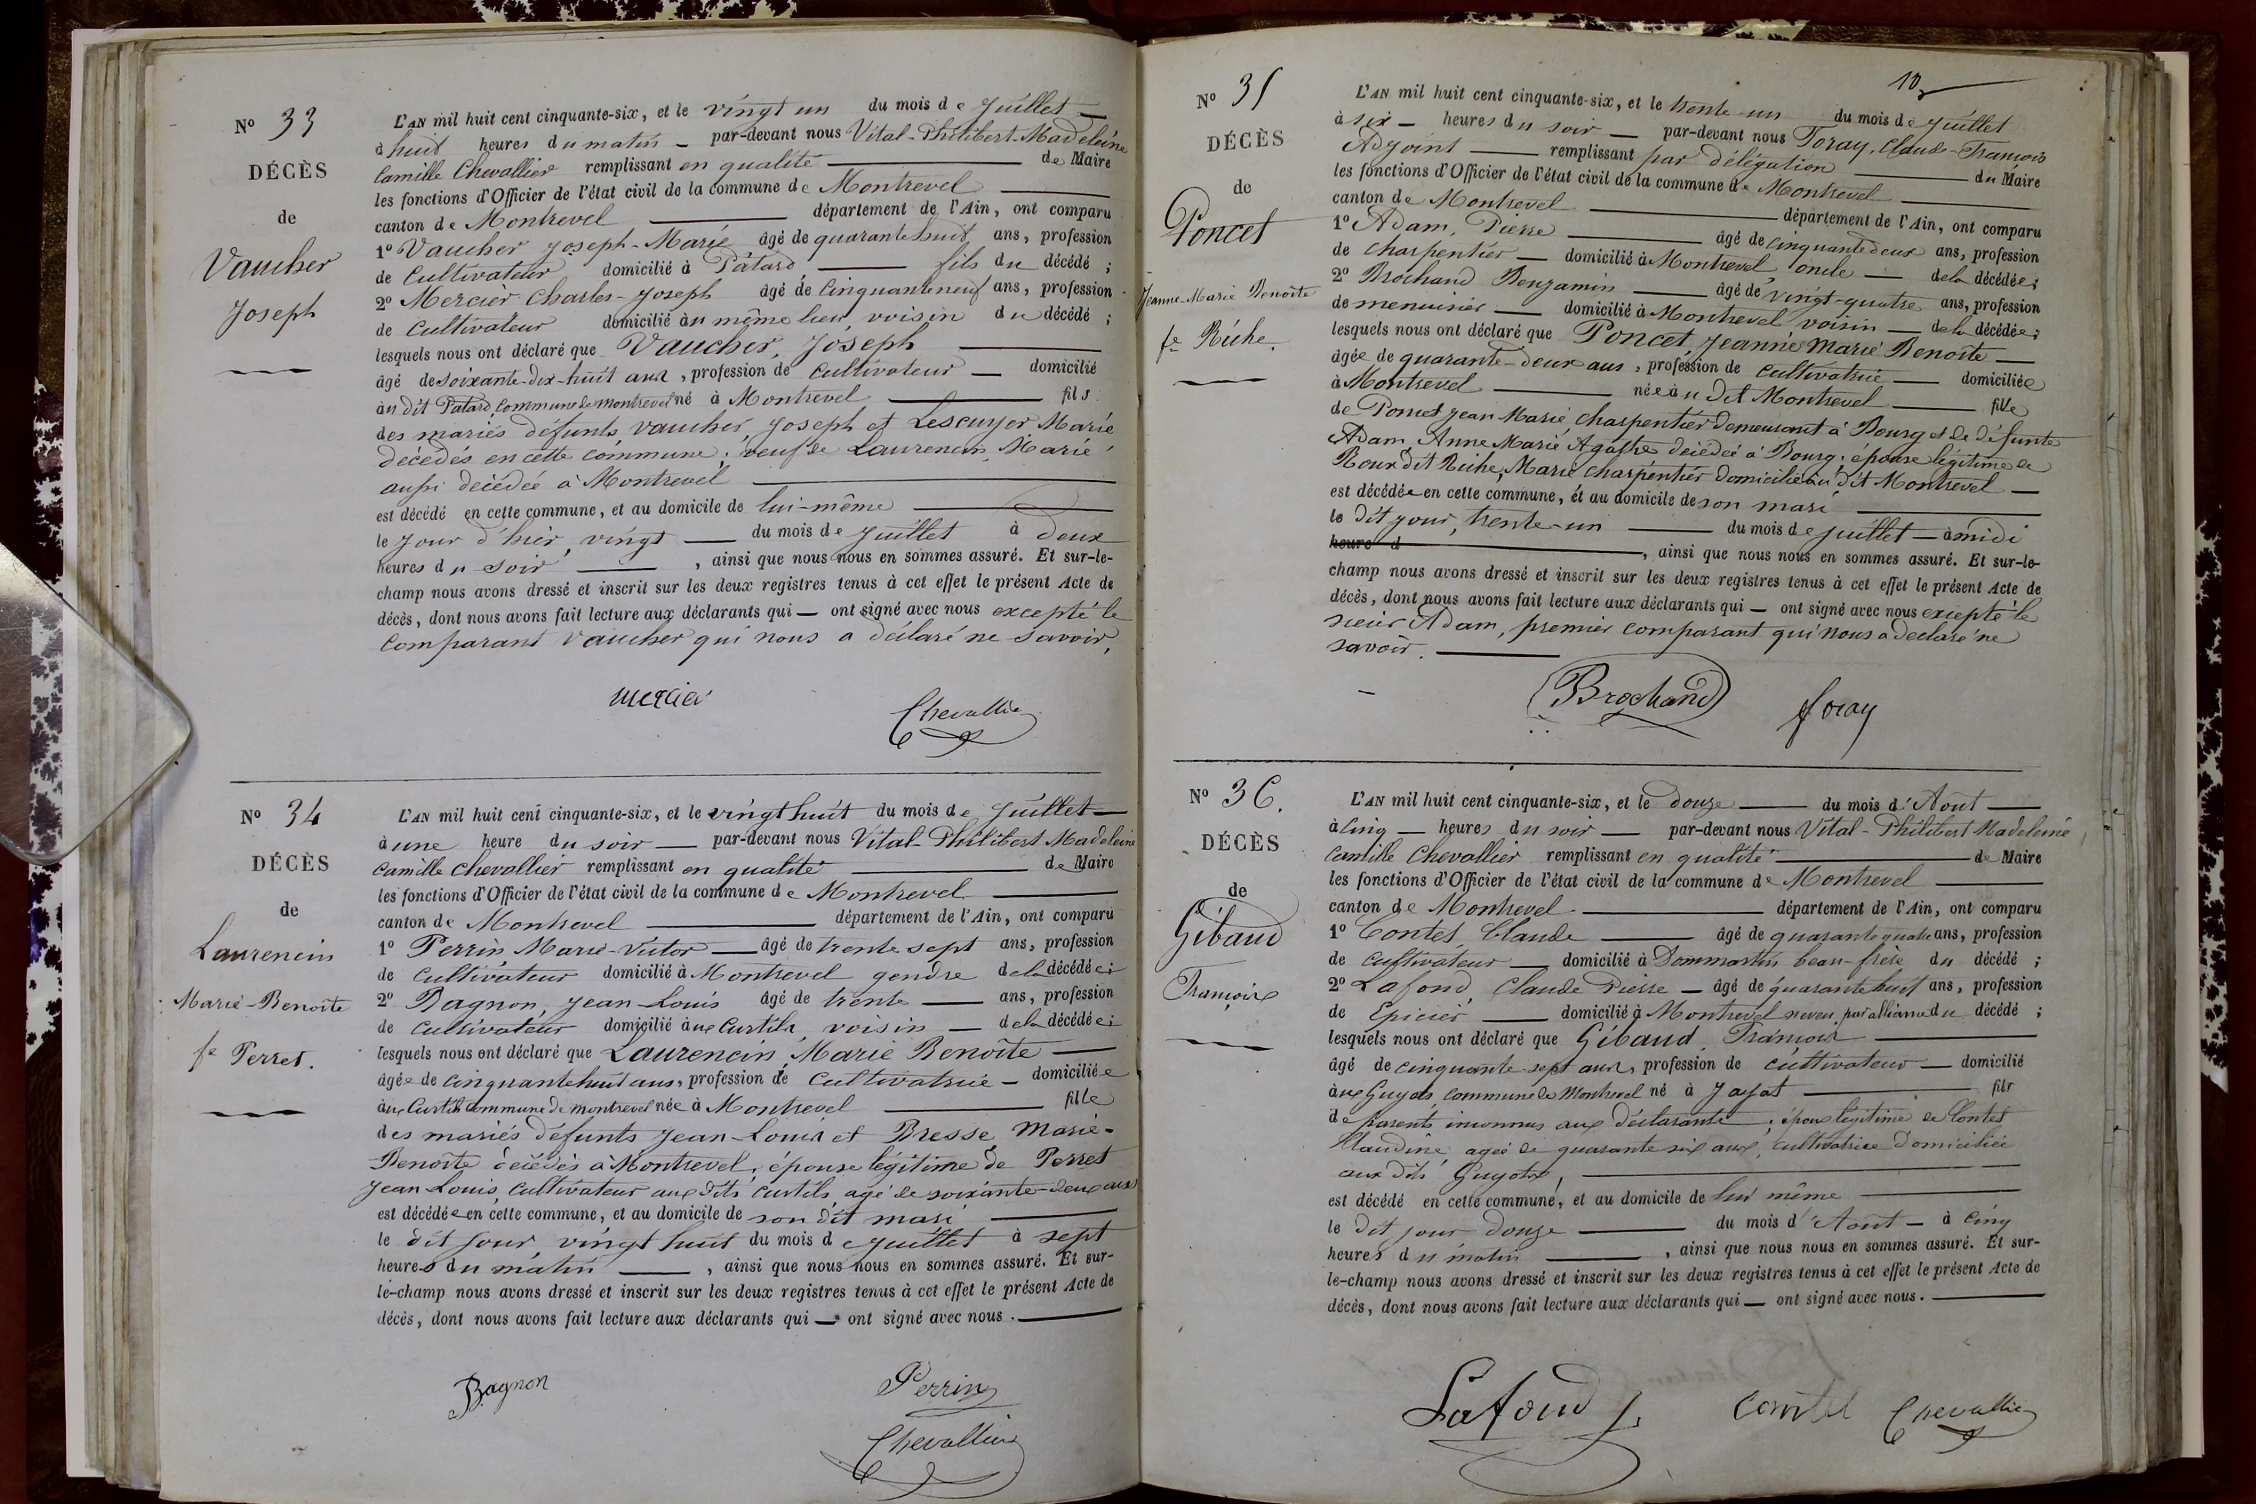 N° 33
DÉCÈS
de
Vaucher
Joseph
L'AN mil huit cent cinquante-six, et le vingt un du mois de Juillet
à huit heures du matin par-devant nous Vital-Philibert-Madeleine
Camille Chevallier remplissant en qualité de Maire
les fonctions d'Officier de l'état civil de la commune de Montrevel
canton de Montrevel département de l'Ain, ont comparu
1° Vaucher Joseph-Marie âgé de quarante huit ans, profession
de Cultivateur domicilié à Patard, fils du décédé ;
2° Mercier Charles-Joseph âgé de Cinquante neuf ans, profession
de Cultivateur domicilié au même lieu, voisin du décédé ;
lesquels nous ont déclaré que Vaucher, Joseph
âgé de soixante-dix-huit ans, profession de Cultivateur domicilié
au dit Patard, commune de Montrevel né à Montrevel fils
des mariés défunts, Vaucher, Joseph et Lescuyer Marie
décédés en cette commune, veuf de Laurencin, Marie
aussi décédée à Montrevel
est décédé en cette commune, et au domicile de lui-même
le jour d'hier, vingt du mois de juillet à deux
heures du soir, ainsi que nous nous en sommes assuré. Et sur-le-
champ nous avons dressé et inscrit sur les deux registres tenus à cet effet le présent Acte de
décès, dont nous avons fait lecture aux déclarants qui ont signé avec nous excepté le
comparant Vaucher qui nous a déclaré ne savoir,
Mercier
Chevallier
N° 34
DÉCÈS
de
Laurencin
Marie-Benoîte
fe Perret.
L'AN mil huit cent cinquante-six, et le vingt huit du mois de Juillet
à une heure du soir par-devant nous Vital-Philibert Madeleine
Camille Chevallier remplissant en qualité de Maire
les fonctions d'Officier de l'état civil de la commune de Montrevel
canton de Montrevel département de l'Ain, ont comparu
1° Perrin Marie-Victor âgé de trente sept ans, profession
de Cultivateur domicilié à Montrevel gendre de la décédée ;
2° Bagnon, Jean-Louis âgé de trente ans, profession
de Cultivateur domicilié aux Curtils, voisin de la décédée ;
lesquels nous ont déclaré que Laurencin, Marie Benoîte
âgée de cinquante huit ans, profession de Cultivatrice domiciliée
aux Curtils commune de Montrevel née à Montrevel fille
des mariés défunts Jean-Louis et Bresse, Marie-
Benoîte décédés à Montrevel, épouse légitime de Perret
Jean-Louis, cultivateur aux dits Curtils, agé de soixante-deux ans
est décédée en cette commune, et au domicile de son dit mari
le dit jour, vingt huit du mois de Juillet à sept
heures du matin, ainsi que nous nous en sommes assuré. Et sur-
le-champ nous avons dressé et inscrit sur les deux registres tenus à cet effet le présent Acte de
décès, dont nous avons fait lecture aux déclarants qui ont signé avec nous.
Bagnon
Perrin
Chevallier
10
N° 35
DÉCÈS
de
Poncet
Jeanne-Marie Benoîte
fe Riche.
L'AN mil huit cent cinquante-six, et le trente-un du mois de Juillet
à six heures du soir par-devant nous Foray, Claude-François
Adjoint remplissant par délégation du Maire
les fonctions d'Officier de l'état civil de la commune de Montrevel
canton de Montrevel département de l'Ain, ont comparu
1° Adam, Pierre âgé de cinquante deux ans, profession
de Charpentier domicilié à Montrevel, oncle de la décédée ;
2° Brochand Benjamin âgé de vingt-quatre ans, profession
de menuisier domicilié à Montrevel voisin de la décédée ;
lesquels nous ont déclaré que Poncet, Jeanne Marie Benoîte
âgée de quarante-deux ans, profession de cultivatrice domiciliée
à Montrevel née au dit Montrevel fille
de Poncet Jean Marie, charpentier demeurant à Bourg et de défunte
Adam, Anne Marie Agathe décédée à Bourg ; épouse légitime de
Roux dit Riche, Marie charpentier domicilié au dit Montrevel
est décédée en cette commune, et au domicile de son mari
le dit jour, trente-un du mois de juillet à midi
heure d, ainsi que nous nous en sommes assuré. Et sur-le-
champ nous avons dressé et inscrit sur les deux registres tenus à cet effet le présent Acte de
décès, dont nous avons fait lecture aux déclarants qui ont signé avec nous excepté le
sieur Adam, premier comparant qui nous a déclaré ne
savoir.
Brochand
foray
N° 36.
DÉCÈS
de
Gibaud
François
L'AN mil huit cent cinquante-six, et le douze du mois d'Aout
à cinq heures du soir par-devant nous Vital-Philibert Madeleine
Camille Chevallier remplissant en qualité de Maire
les fonctions d'Officier de l'état civil de la commune de Montrevel
canton de Montrevel département de l'Ain, ont comparu
1° Contet Claude âgé de quarante quatre ans, profession
de cultivateur domicilié à Dommartin beau-frère du décédé ;
2° Lafond, Claude Pierre âgé de quarante huit ans, profession
de Epicier domicilié à Montrevel neveu par alliance du décédé ;
lesquels nous ont déclaré que Gibaud, François
âgé de cinquante-sept ans, profession de cultivateur domicilié
aux Guyots, commune de Montrevel né à Jayat fils
de parents inconnus aux déclarants ; époux légitime de Contet
Claudine, agée de quarante six ans, cultivatrice domiciliée
aux dits Guyots,
est décédé en cette commune, et au domicile de lui même
le dit jour douze du mois d'Aout à cinq
heures du matin, ainsi que nous nous en sommes assuré. Et sur-
le-champ nous avons dressé et inscrit sur les deux registres tenus à cet effet le présent Acte de
décès, dont nous avons fait lecture aux déclarants qui ont signé avec nous.
Lafond
Contet
Chevallier